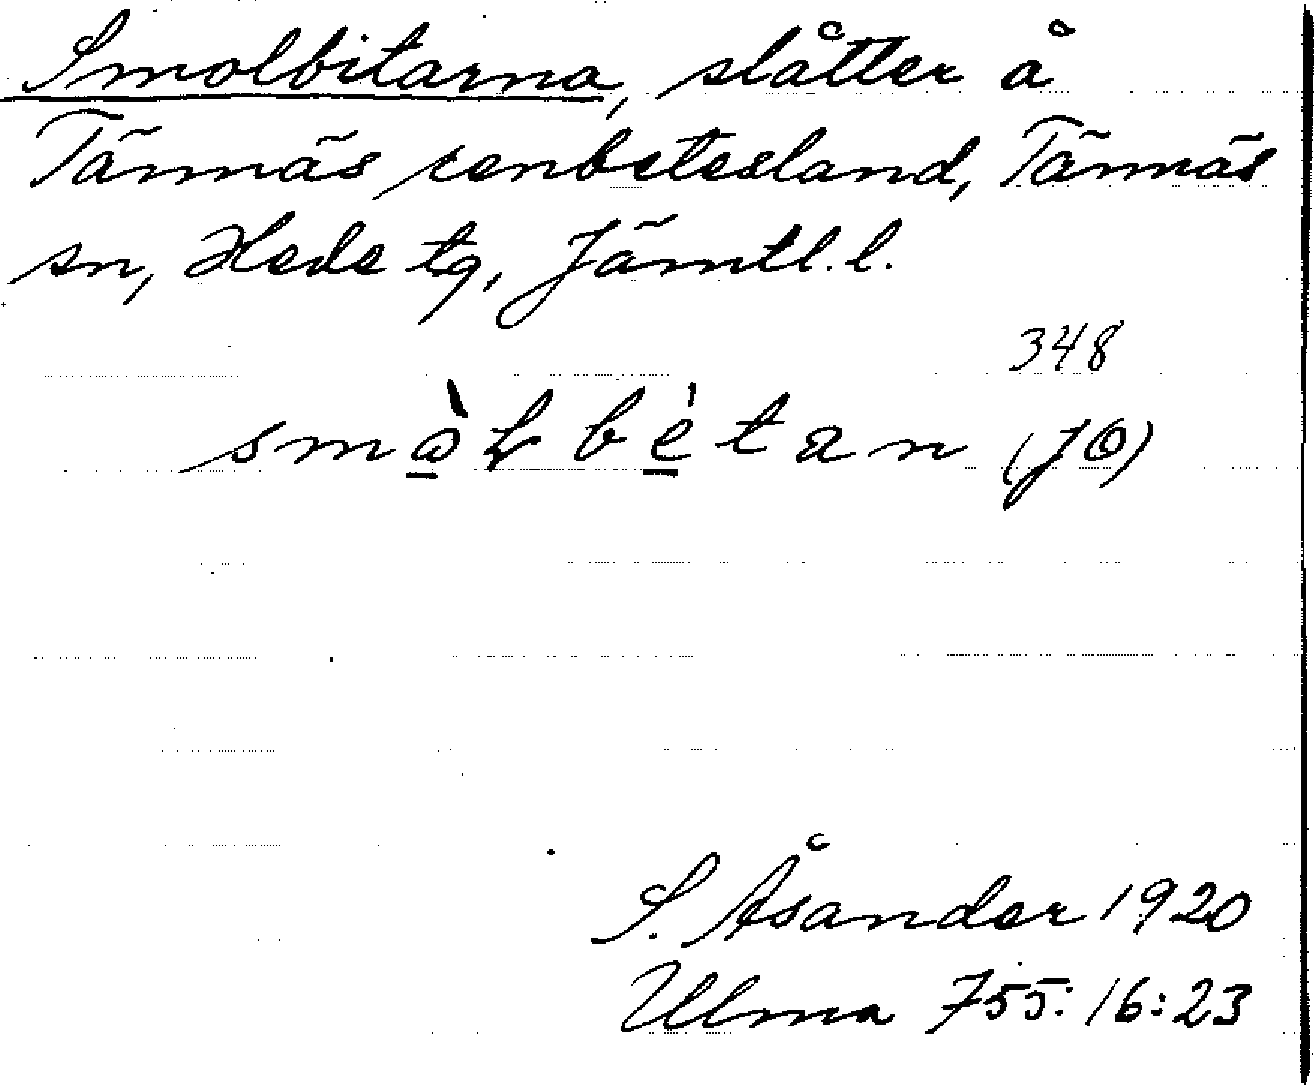 Smolbitarna, slåtter å
Tännäs renbetesland, Tännäs
sn, Hede tg, Jämtl. l.
348
smò̲Ƚbè̲tan (JÖ)
S. Åsander 1920
Ulma 755: 16:23